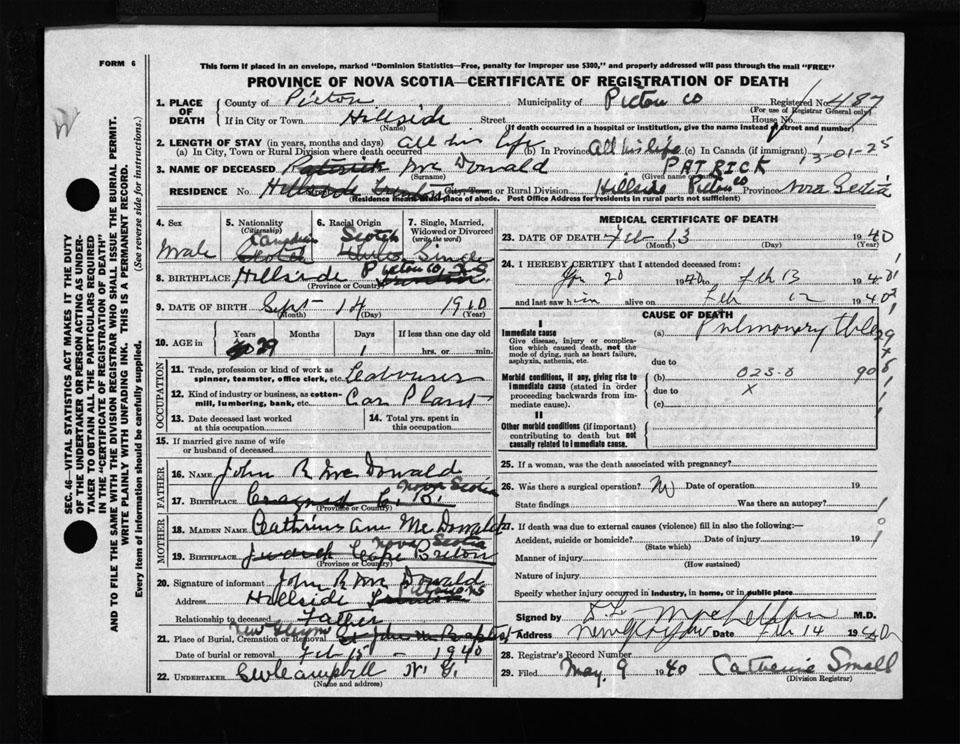 FORM 6
This form if placed in an envelope, marked "Dominion Statistics—Free, penalty for improper use $300," and properly addressed will pass through the mail "FREE"
PROVINCE OF NOVA SCOTIA—CERTIFICATE OF REGISTRATION OF DEATH
1. PLACE OF DEATH
County of Pictou Municipality of Pictou Co Registered No. 487
(For use of Registrar General only)
If in City or Town Hillside Street House No.
(Name) (If death occurred in a hospital or institution, give the name instead of street and number)
2. LENGTH OF STAY (in years, months and days)
(a) In City, Town or Rural Division where death occurred All his life (b) In Province All his life (c) In Canada (if immigrant)
13-01-25
3. NAME OF DECEASED Patrick Mc Donald PATRICK
(Surname) (Given name or names)
RESIDENCE No. Hillside City, Town or Rural Division Hillside Pictou Co Province Nova Scotia
(Residence means usual place of abode. Post Office Address for residents in rural parts not sufficient)
4. Sex
Male
5. Nationality (Citizenship)
Canadian
Scotch
6. Racial Origin
Scotch
7. Single, Married, Widowed or Divorced (write the word)
Single
8. BIRTHPLACE Hillside Pictou Co. N S
(Province or Country)
9. DATE OF BIRTH Sept 14 1910
(Month) (Day) (Year)
10. AGE in
Years Months Days If less than one day old
29 hrs. or min.
OCCUPATION
11. Trade, profession or kind of work as spinner, teamster, office clerk, etc. Labourer
12. Kind of industry or business, as cotton-mill, lumbering, bank, etc. Car Plant
13. Date deceased last worked at this occupation
14. Total yrs. spent in this occupation
15. If married give name of wife or husband of deceased
FATHER
16. NAME John R Mc Donald
17. BIRTHPLACE C. B. Nova Scotia
(Province or Country)
MOTHER
18. MAIDEN NAME Cathrine Ann Mc Donald
19. BIRTHPLACE Cape Breton Nova Scotia
(Province or Country)
20. Signature of informant John R Mc Donald
Address Hillside
Relationship to deceased Father
21. Place of Burial, Cremation or Removal St John the Baptist
Date of burial or removal Feb 15 - 1940
22. UNDERTAKER Campbell N. G.
(Name and address)
MEDICAL CERTIFICATE OF DEATH
23. DATE OF DEATH Feb 13 1940
(Month) (Day) (Year)
24. I HEREBY CERTIFY that I attended deceased from:
Jan 20 1940 to Feb 13 1940
and last saw him alive on Feb 12 1940
CAUSE OF DEATH
I
Immediate cause
Give disease, injury or complication which caused death, not the mode of dying, such as heart failure, asphyxia, asthenia, etc.
(a) Pulmonary
due to
Morbid conditions, if any, giving rise to immediate cause (stated in order proceeding backwards from immediate cause).
(b) 023-0 90
due to X
(c)
II
Other morbid conditions (if important) contributing to death but not causally related to immediate cause.
25. If a woman, was the death associated with pregnancy?
26. Was there a surgical operation? No Date of operation 19
State findings Was there an autopsy?
27. If death was due to external causes (violence) fill in also the following:—
Accident, suicide or homicide? Date of injury 19
(State which)
Manner of injury
(How sustained)
Nature of injury
Specify whether injury occurred in industry, in home, or in public place
Signed by M.D.
Address New Glasgow Date Feb 14 1940
28. Registrar's Record Number
29. Filed May 9 1940 Catherine Small
(Division Registrar)
SEC. 46—VITAL STATISTICS ACT MAKES IT THE DUTY
OF THE UNDERTAKER OR PERSON ACTING AS UNDER-
TAKER TO OBTAIN ALL THE PARTICULARS REQUIRED
IN THE "CERTIFICATE OF REGISTRATION OF DEATH"
AND TO FILE THE SAME WITH THE DIVISION REGISTRAR WHO SHALL ISSUE THE BURIAL PERMIT.
WRITE PLAINLY WITH UNFADING INK. THIS IS A PERMANENT RECORD.
Every item of information should be carefully supplied. (See reverse side for instructions.)